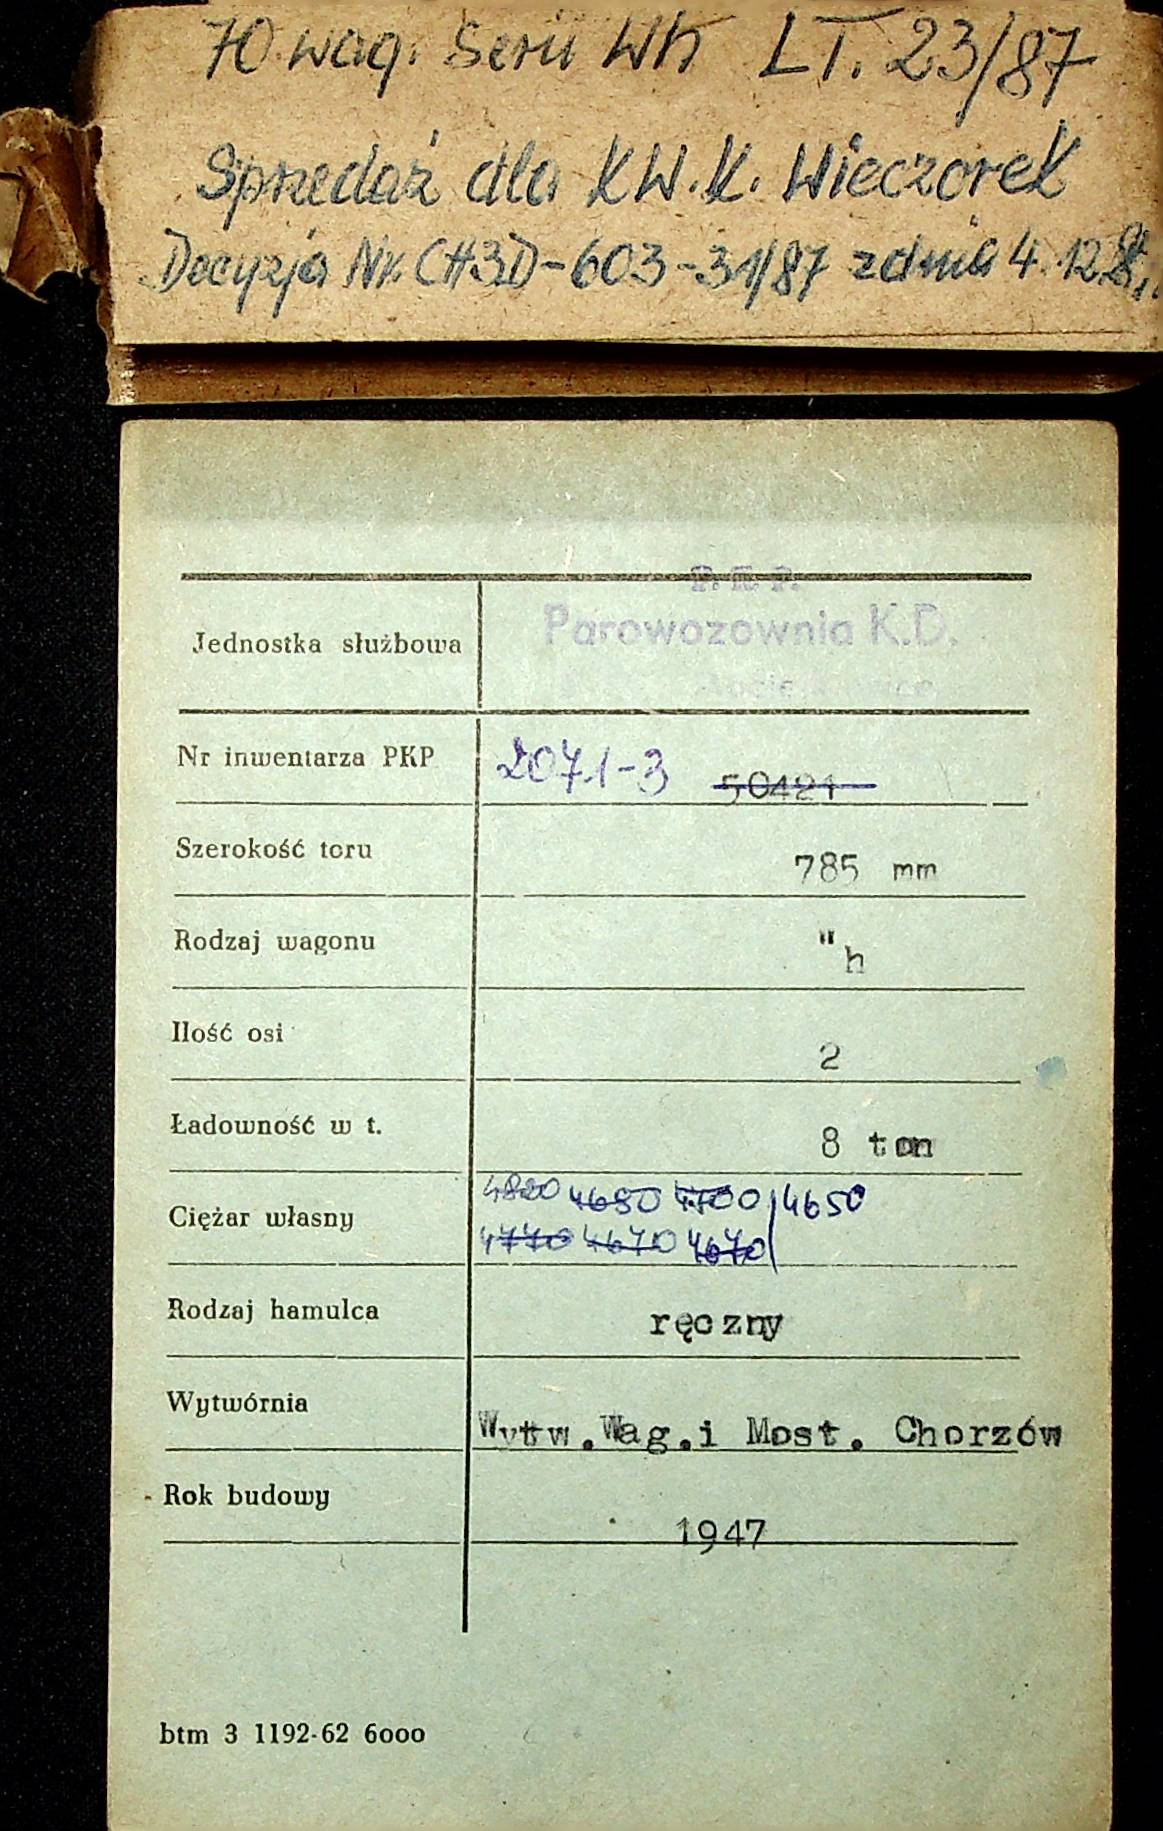 70 wag. Serii Wh LT. 23/87
Sprzedaż dla KW.K. Wieczorek
Decyzja Nr. CH3D-603-31/87 z dnia 4.12.
P.K.P.
Jednostka służbowa Parowozownia K.D.
Nr inwentarza PKP 2071-3 50421
Szerokość toru 785 mm
Rodzaj wagonu "h
Ilość osi 2
Ładowność w t. 8 ton
4820 4680 4700 4650
Ciężar własny
4770 4670 4670
Rodzaj hamulca ręczny
Wytwórnia Wytw.Wag.i Most. Chorzów
Rok budowy 1947
btm 3 1192-62 6000